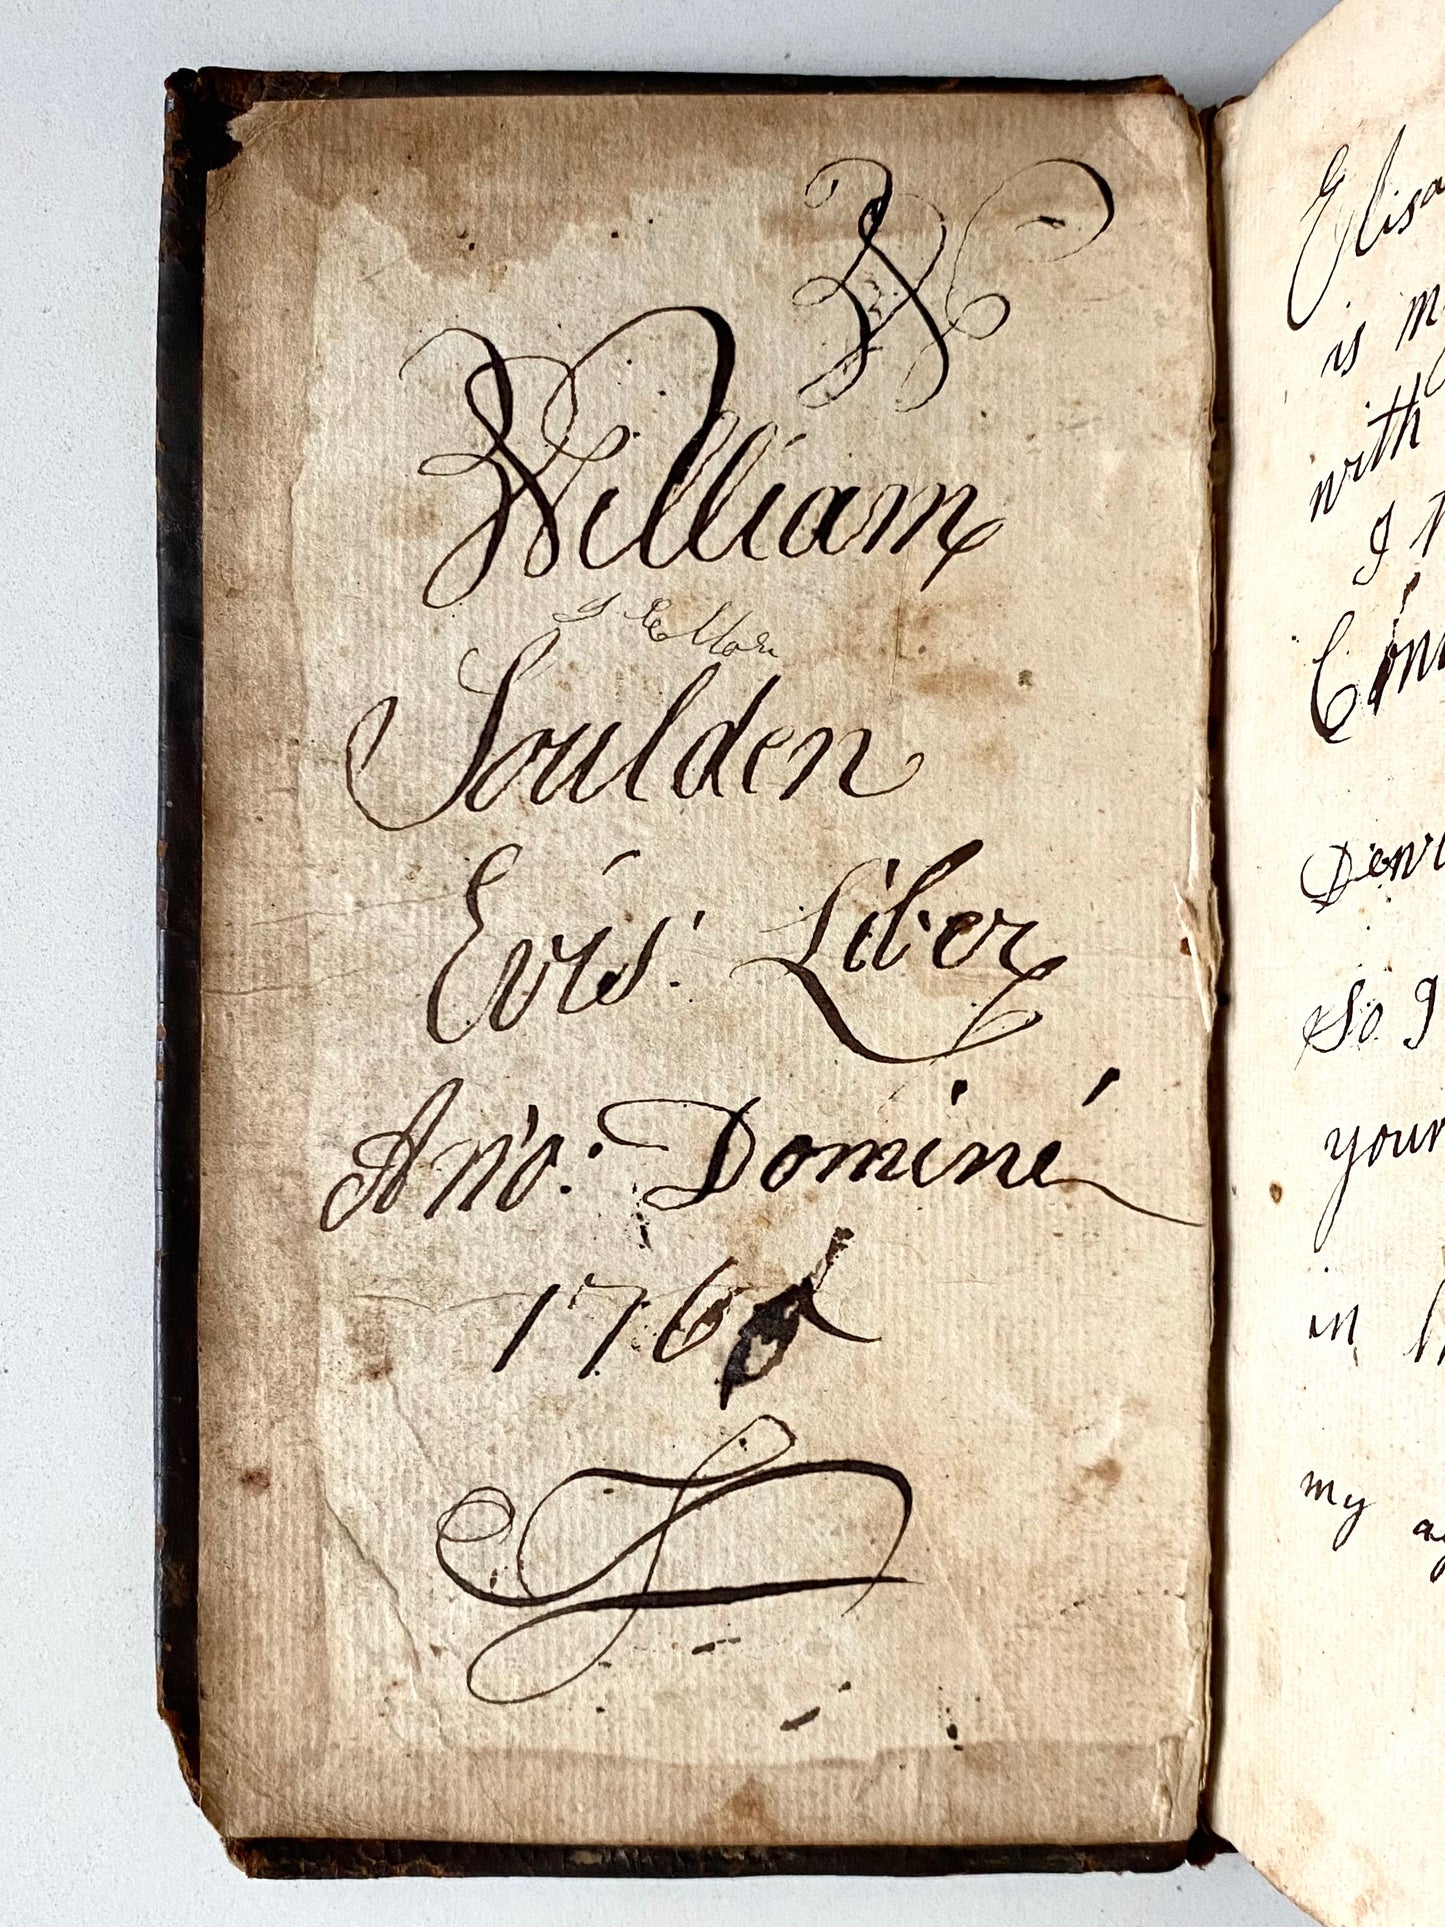 W
William
Soulden
Evis: Liber
An'o: Dominé
176
Elisa
is m
with
I
Con
Devi
So I
your
in
my